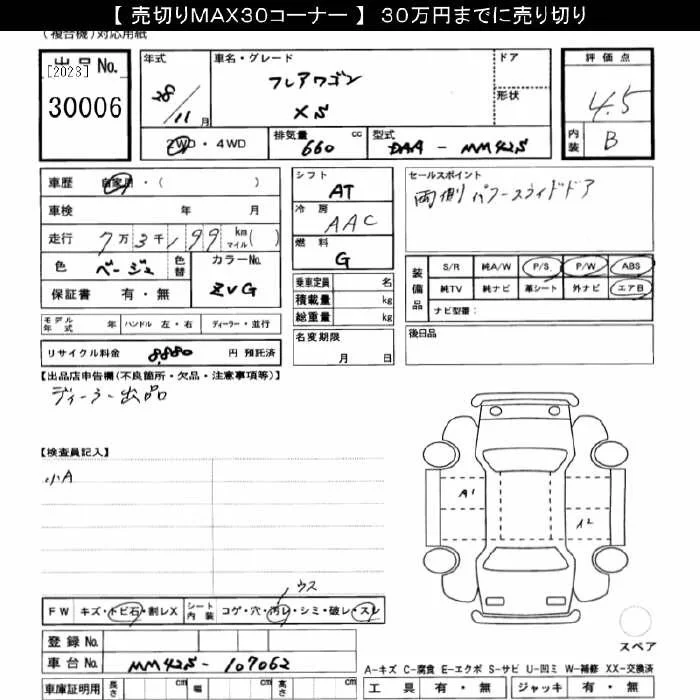 【 売切りMAX30コーナー 】 30万円までに売り切り
(複合機)対応用紙
出品No.
[2023]
30006
年式
28/11月
車名・グレード
フレアワゴン
XS
ドア
形状
評価点
4.5
内装 B
2WD・4WD
排気量 660 cc
型式 DAA - MM42S
車歴 自家用・( )
車検 年 月
走行 7万3千199 km マイル( )
色 ベージュ 色替
カラーNo. ZVG
保証書 有・無
モデル年式 年 ハンドル 左・右 ディーラー・並行
リサイクル料金 8,880 円 預託済
シフト AT
冷房 AAC
燃料 G
乗車定員 名
積載量 kg
総重量 kg
名変期限
月 日
セールスポイント
両側パワースライドドア
装備品
S/R 純A/W P/S P/W ABS
純TV 純ナビ 革シート 外ナビ エアB
ナビ型番:
後日品
【出品店申告欄(不良箇所・欠品・注意事項等)】
ディーラー出品
【検査員記入】
小A
A1
A2
ウス
FW キズ・トビ石・割レX
シート内装 コゲ・穴・汚レ・シミ・破レ・スレ
登録No.
車台No. MM42S-107062
車庫証明用 長さ cm 幅 cm 高さ cm
スペア
A-キズ C-腐食 E-エクボ S-サビ U-凹ミ W-補修 XX-交換済
工具 有・無 ジャッキ 有・無